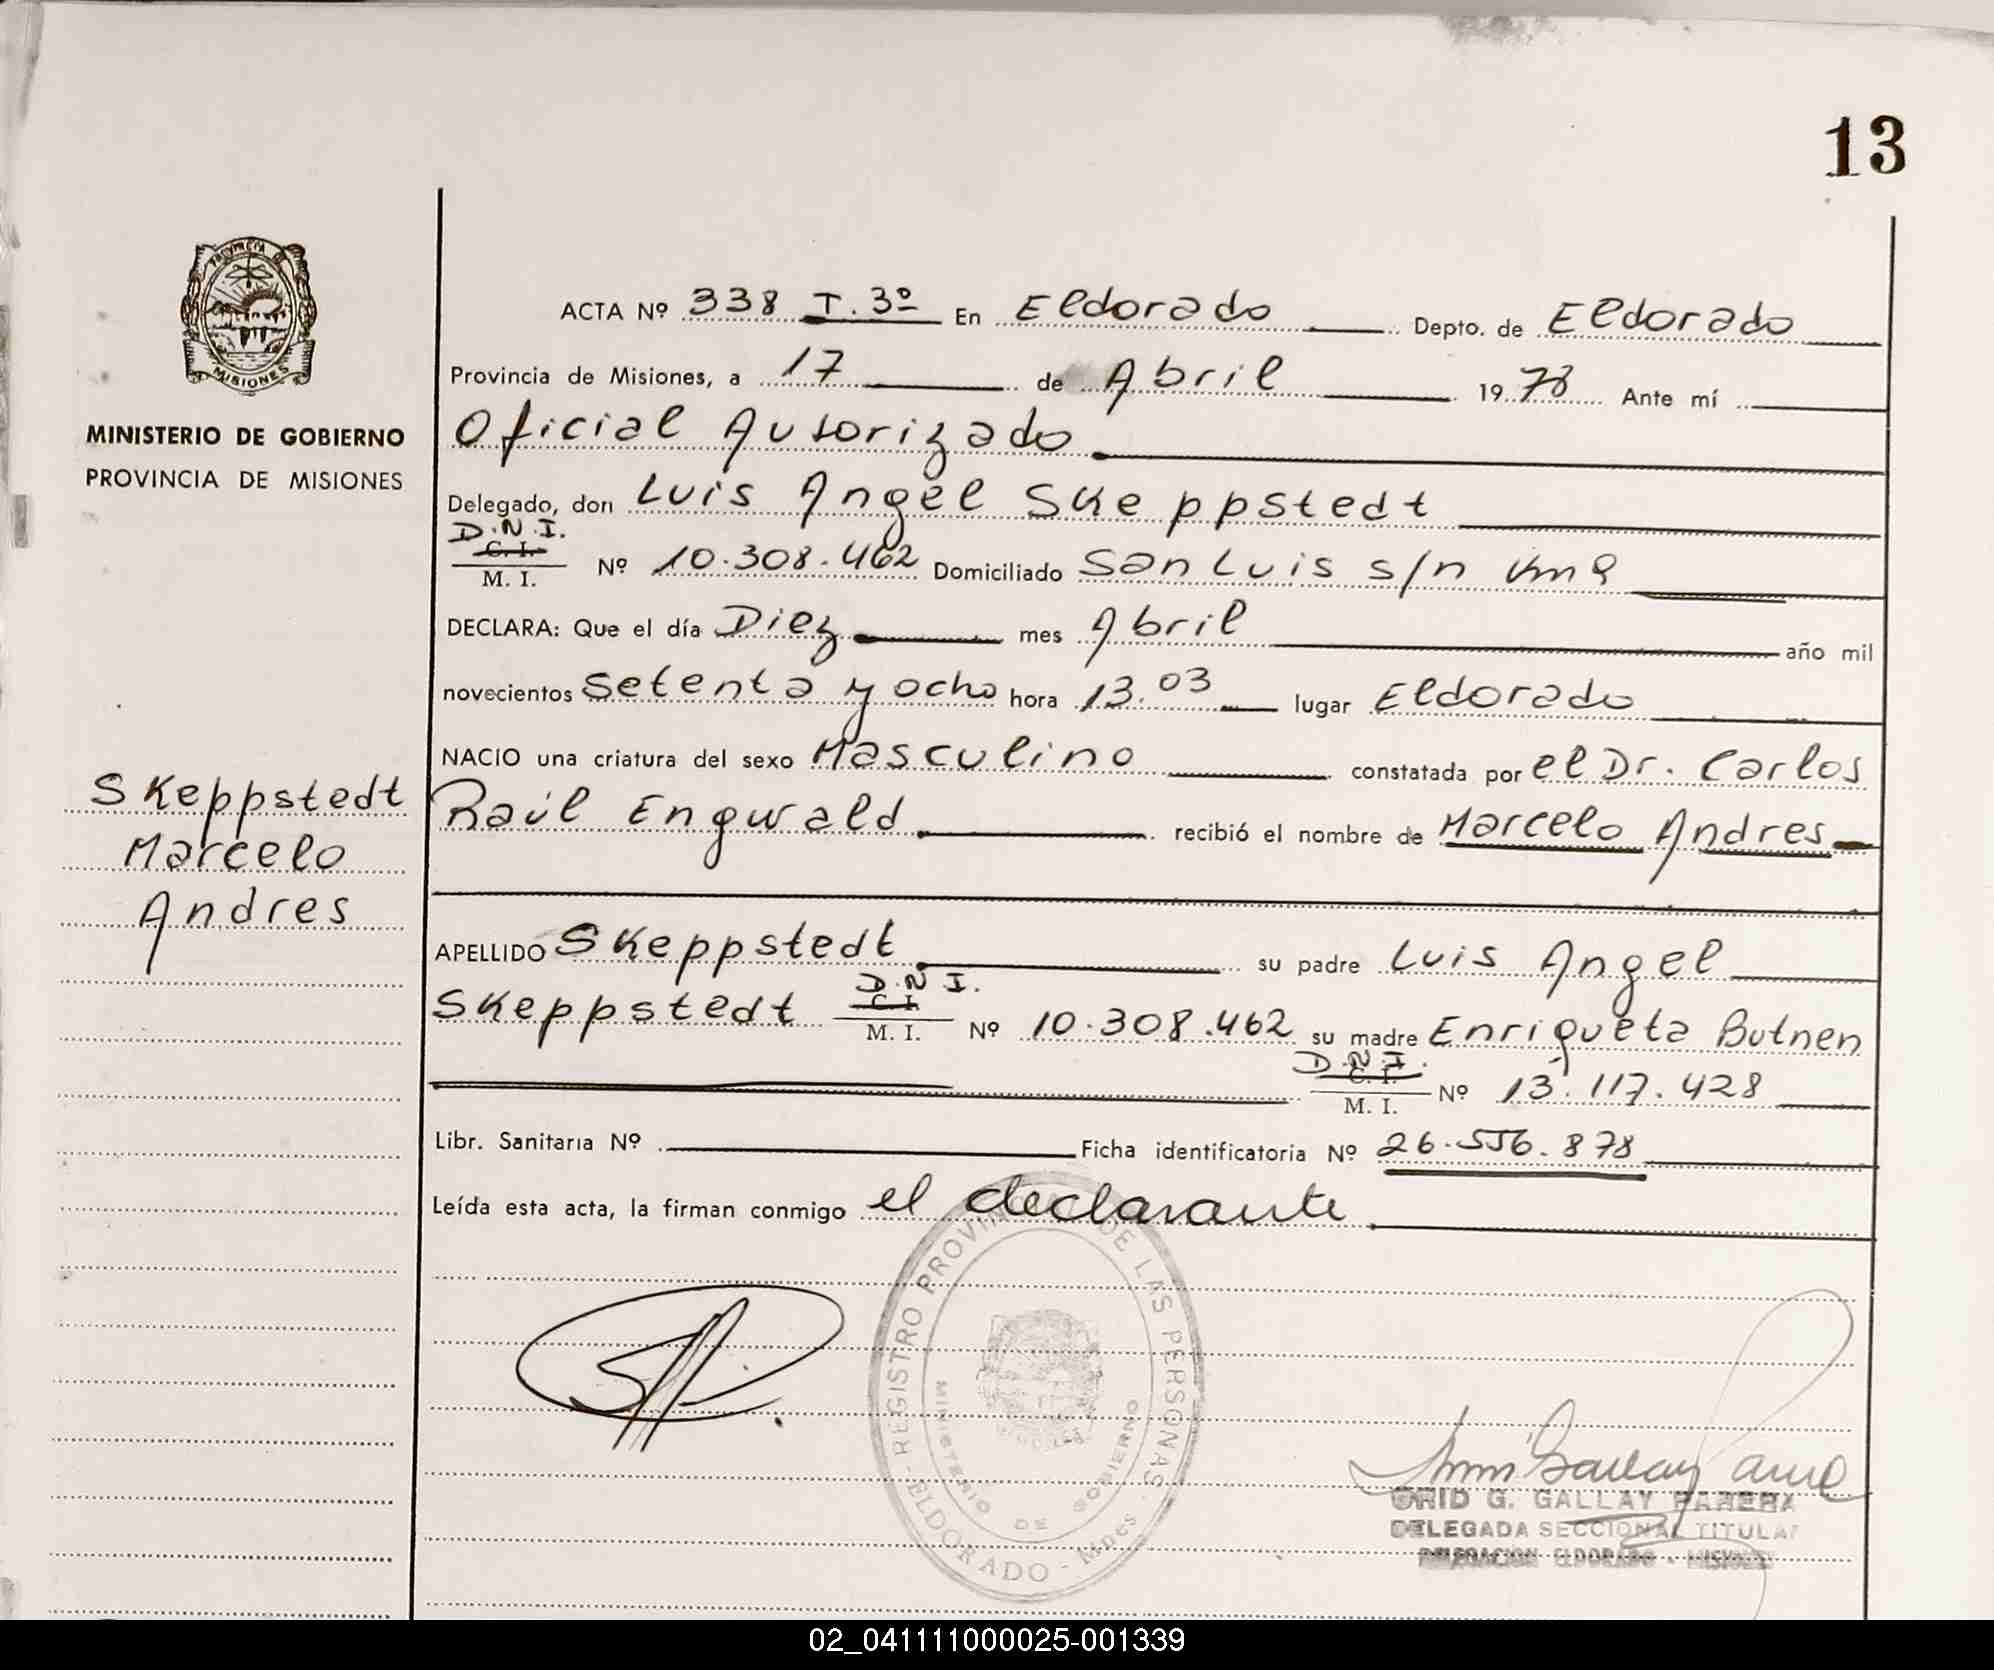 13
PROVINCIA DE
MISIONES
MINISTERIO DE GOBIERNO
PROVINCIA DE MISIONES
ACTA Nº 338 T. 3º En Eldorado Depto. de Eldorado
Provincia de Misiones, a 17 de Abril 1978 Ante mí
Oficial Autorizado
Delegado, don Luis Angel Skeppstedt
D.N.I.
C. I.
M. I. Nº 10.308.462 Domiciliado San Luis s/n km 9
DECLARA: Que el día Diez mes Abril año mil
novecientos Setenta y ocho hora 13.03 lugar Eldorado
NACIO una criatura del sexo Masculino constatada por el Dr. Carlos
Raúl Engwald recibió el nombre de Marcelo Andres
Skeppstedt
Marcelo
Andres
APELLIDO Skeppstedt su padre Luis Angel
D.N.I.
C. I.
Skeppstedt M. I. Nº 10.308.462 su madre Enriqueta Butnen
D.N.I.
C. I.
M. I. Nº 13.117.428
Libr. Sanitaria Nº Ficha identificatoria Nº 26.556.878
Leída esta acta, la firman conmigo el declarante
REGISTRO PROVINCIAL DE LAS PERSONAS
MINISTERIO DE GOBIERNO
ELDORADO - Mnes.
G. GALLAY PARERA
DELEGADA SECCIONAL TITULAR
DELEGACION ELDORADO - MISIONES
02_041111000025-001339